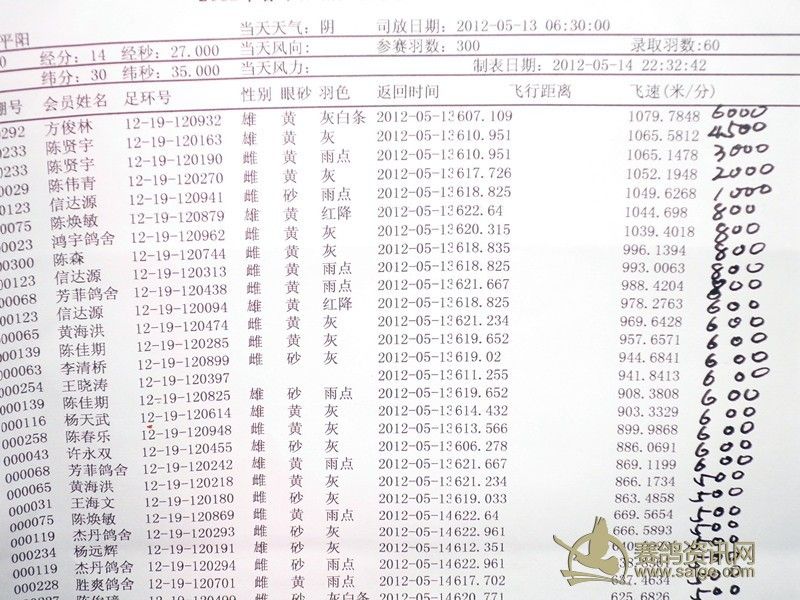 平阳 当天天气: 阴 司放日期: 2012-05-13 06:30:00
0 经分: 14 经秒: 27.000 当天风向: 参赛羽数: 300 录取羽数:60
纬分: 30 纬秒: 35.000 当天风力: 制表日期: 2012-05-14 22:32:42
棚号 会员姓名 足环号 性别 眼砂 羽色 返回时间 飞行距离 飞速(米/分)
0292 方俊林 12-19-120932 雄 黄 灰白条 2012-05-13 607.109 1079.7848 6000
0233 陈贤宇 12-19-120163 雄 黄 灰 2012-05-13 610.951 1065.5812 4500
0233 陈贤宇 12-19-120190 雌 黄 雨点 2012-05-13 610.951 1065.1478 3000
0029 陈伟青 12-19-120270 雌 黄 灰 2012-05-13 617.726 1052.1948 2000
0123 信达源 12-19-120941 雌 砂 雨点 2012-05-13 618.825 1049.6268 1000
0075 陈焕敏 12-19-120879 雄 黄 红降 2012-05-13 622.64 1044.698 800
0023 鸿宇鸽舍 12-19-120962 雄 黄 灰 2012-05-13 620.315 1039.4018 800
00300 陈森 12-19-120744 雌 黄 灰 2012-05-13 618.835 996.1394 800
00123 信达源 12-19-120313 雌 黄 雨点 2012-05-13 618.825 993.0063 800
00068 芳菲鸽舍 12-19-120438 雌 黄 雨点 2012-05-13 621.667 988.4204 800
00123 信达源 12-19-120094 雄 黄 红降 2012-05-13 618.825 978.2763 600
000065 黄海洪 12-19-120474 雌 黄 灰 2012-05-13 621.234 969.6428 600
000139 陈佳期 12-19-120285 雌 黄 灰 2012-05-13 619.652 957.6571 600
000063 李清桥 12-19-120899 雌 砂 灰 2012-05-13 619.02 944.6841 600
000254 王晓涛 12-19-120397 2012-05-13 611.255 941.8413 600
000139 陈佳期 12-19-120825 雄 砂 雨点 2012-05-13 619.652 908.3808 600
000116 杨天武 12-19-120614 雄 黄 灰 2012-05-13 614.432 903.3329 600
000258 陈春乐 12-19-120948 雌 黄 灰 2012-05-13 613.566 899.9868 600
000043 许永双 12-19-120455 雌 砂 灰 2012-05-13 606.278 886.0691 600
000068 芳菲鸽舍 12-19-120242 雄 黄 雨点 2012-05-13 621.667 869.1199 600
000065 黄海洪 12-19-120218 雌 黄 灰 2012-05-13 621.234 866.1734 400
000031 王海文 12-19-120180 雌 砂 灰 2012-05-13 619.033 863.4858 400
000075 陈焕敏 12-19-120869 雌 黄 雨点 2012-05-14 622.64 669.5654 400
000119 杰丹鸽舍 12-19-120293 雌 砂 灰 2012-05-14 622.961 666.5893
000234 杨远辉 12-19-120191 雄 砂 灰 2012-05-14 612.351
000119 杰丹鸽舍 12-19-120294 雌 砂 雨点 2012-05-14 622.961
000228 胜爽鸽舍 12-19-120701 雌 黄 雨点 2012-05-14 617.702 637.4634
12-19-120499 灰白条 2012-05-14 620.771 625.6826
赛鸽资讯网
www.saige.com